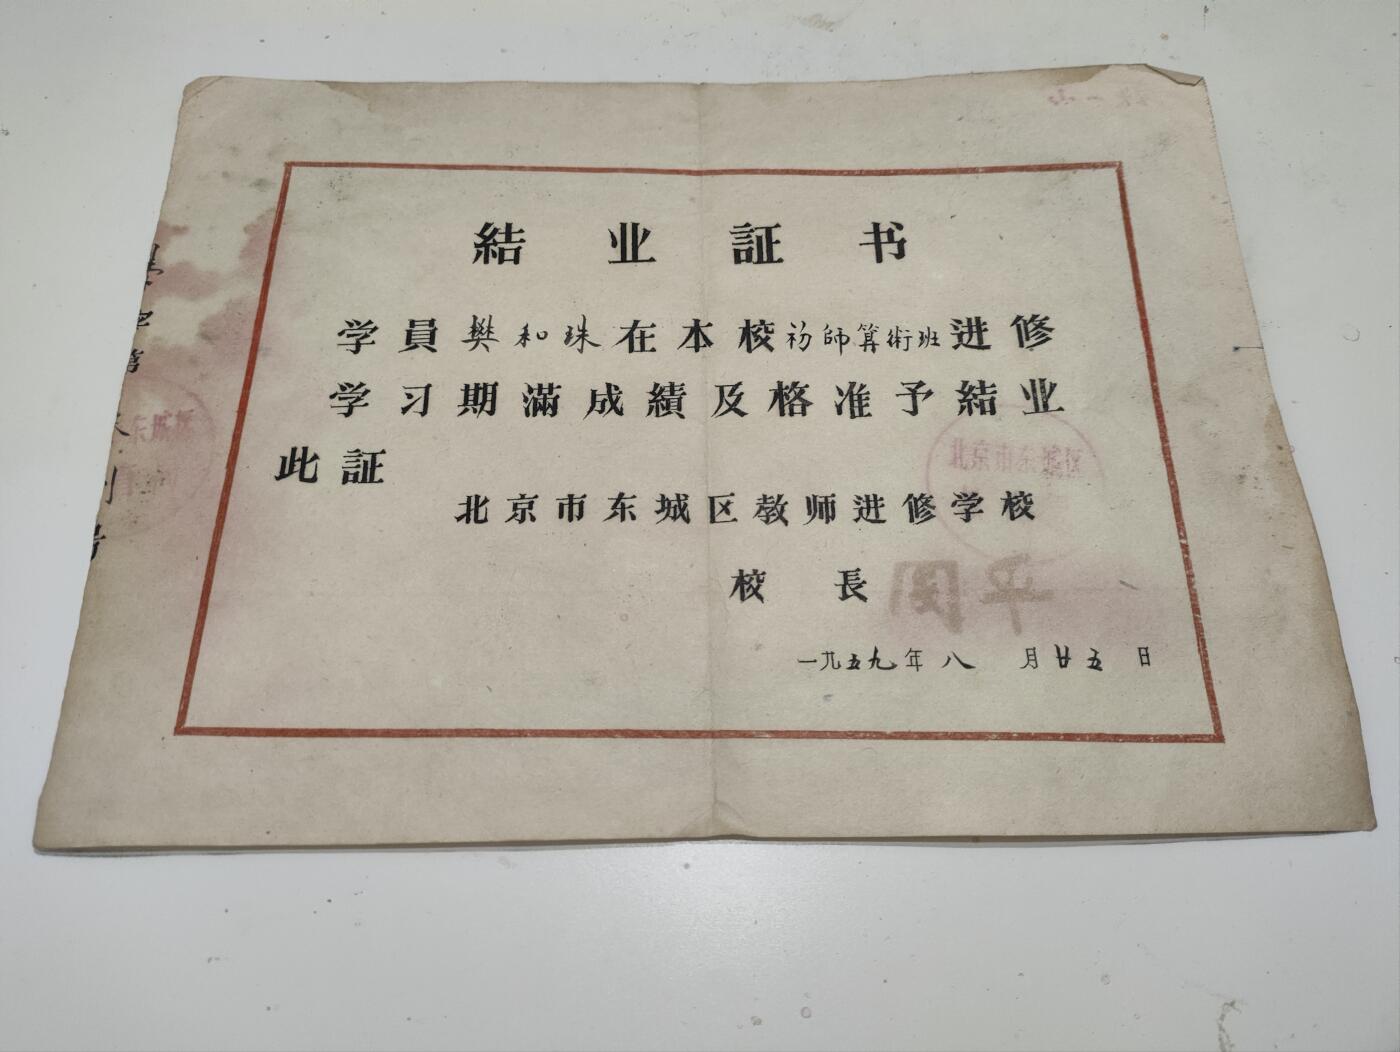 結业証书
学員樊和珠在本校初師算術班进修
学习期滿成績及格准予結业
此証
北京市东城区教师进修学校
校長
一九五九年八月廿五日
北京市东城区
东城区